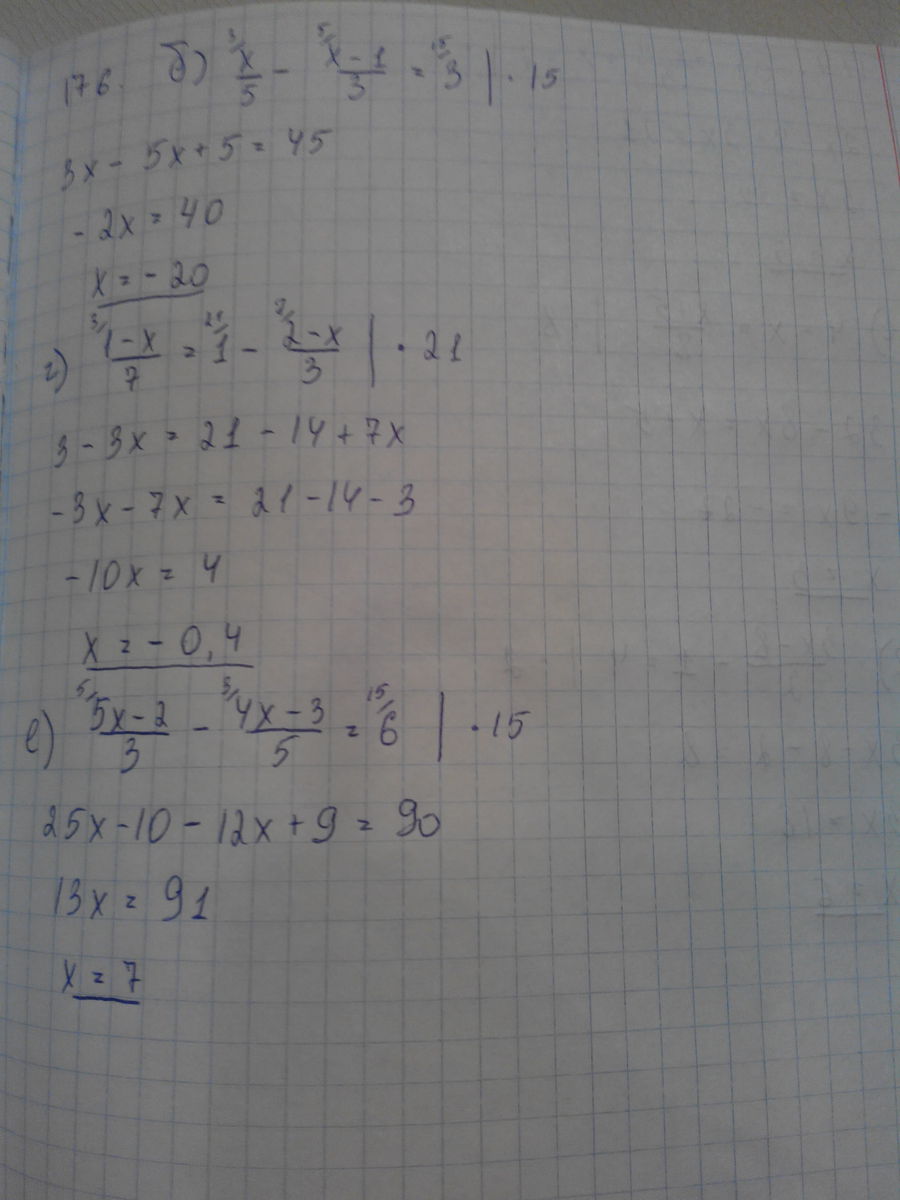 176. б) ³/x/5 - ⁵/x-1/3 = ¹⁵/3 | · 15
3x - 5x + 5 = 45
-2x = 40
x = -20
г) ³/1-x/7 = ²¹/1 - ⁷/2-x/3 | · 21
3 - 3x = 21 - 14 + 7x
-3x - 7x = 21 - 14 - 3
-10x = 4
x = -0,4
е) ⁵/5x-2/3 - ³/4x-3/5 = ¹⁵/6 | · 15
25x - 10 - 12x + 9 = 90
13x = 91
x = 7